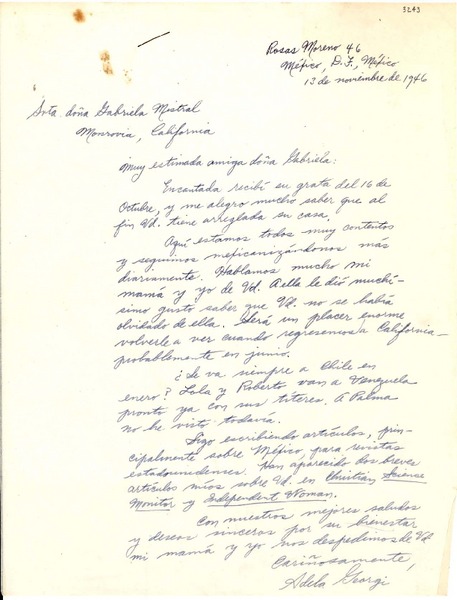 3243
Rosas Moreno 46
Méjico, D.F., Méjico
13 de noviembre de 1946
Srta. doña Gabriela Mistral
Monrovia, California
Muy estimada amiga doña Gabriela:
Encantada recibí su grata del 16 de
Octubre, y me alegro mucho saber que al
fin Vd. tiene arreglada su casa.
Aquí estamos todos muy contentos
y seguimos mejicanizándonos más
diariamente. Hablamos mucho mi
mamá y yo de Vd. A ella le dió muchí-
simo gusto saber que Vd. no se había
olvidado de ella. Será un placer enorme
volverle a ver cuando regresemos a California-
probablemente en junio.
¿Se va siempre a Chile en
enero? Lola y Roberto van a Venezuela
pronto ya con sus títeres. A Palma
no he visto todavía.
Sigo escribiendo artículos, prin-
cipalmente sobre Méjico, para revistas
estadounidenses. Han aparecido dos breves
artículos míos sobre Vd. en Christian Science
Monitor y Independent Woman.
Con nuestros mejores saludos
y deseos sinceros por su bienestar
mi mamá y yo nos despedimos de Vd
Cariñosamente,
Adela Georgi